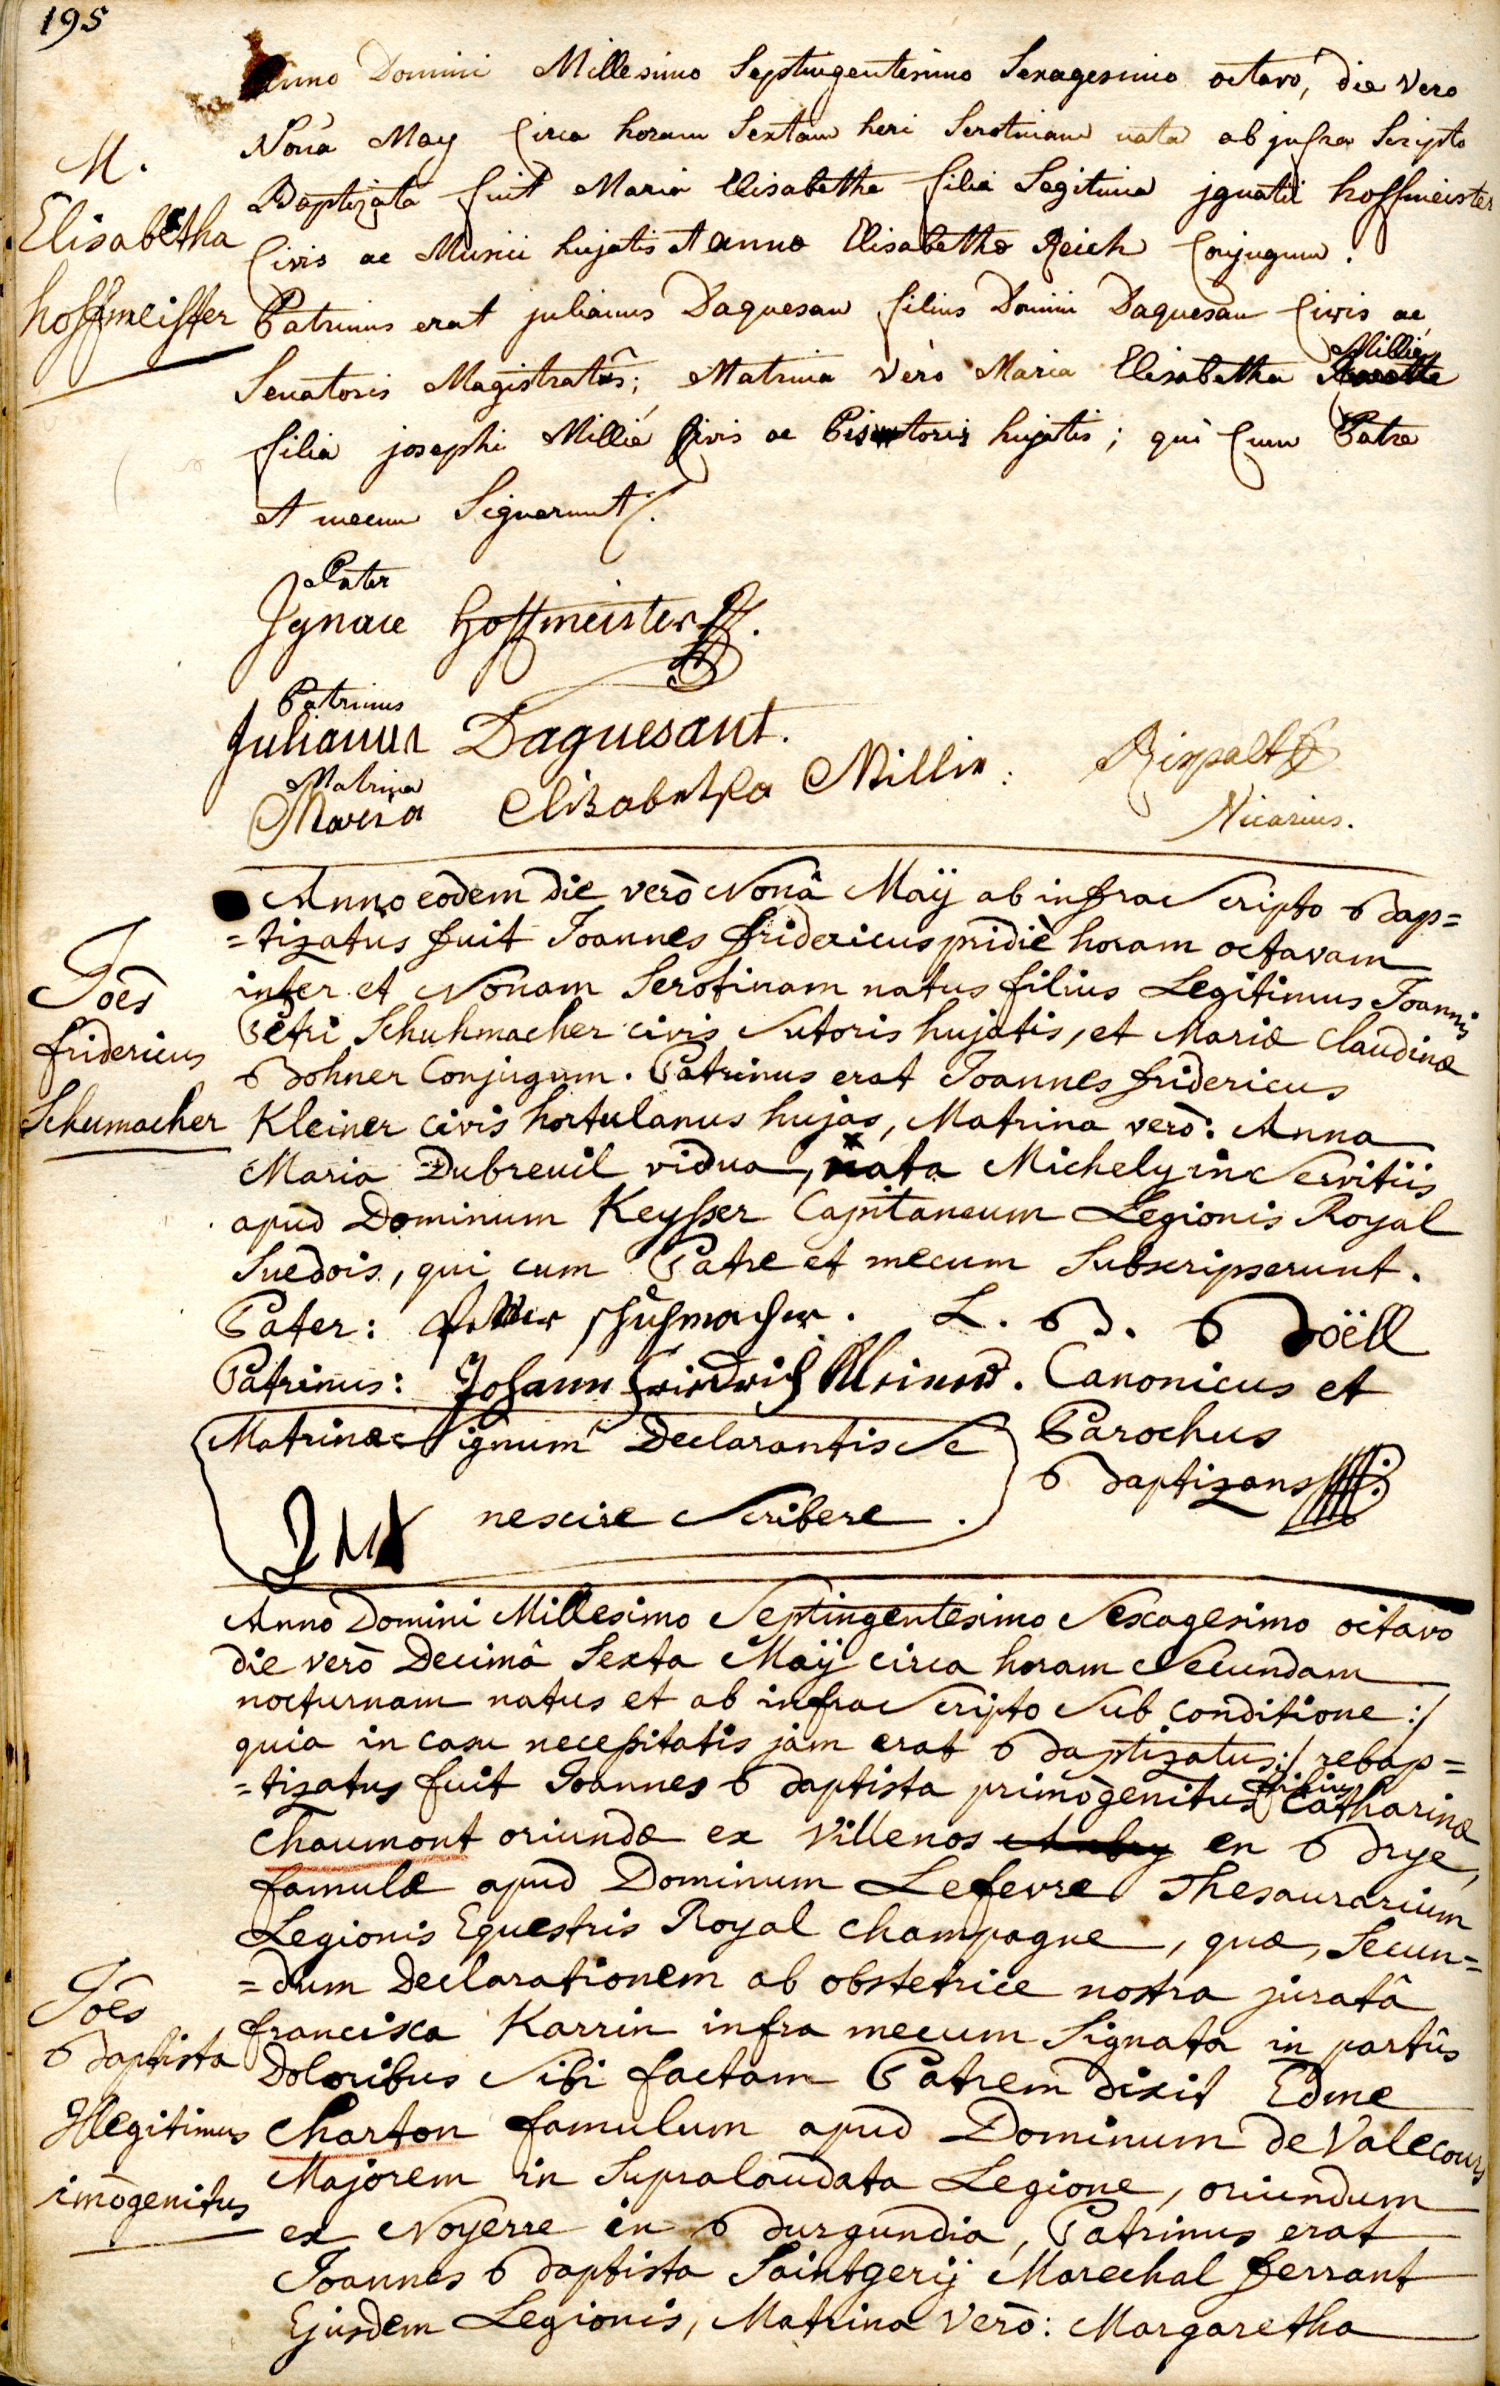 195
Anno Domini Millesimo Septingentesimo Sexagesimo octavo, die vero
Nona May Circa horam Sextam heri Serotinam nata ab jnfra Scripto
Baptizata fuit Maria Elisabetha filia Legitima jgnatii hoffmeister
Civis ac Musici hujatis et annæ Elisabethæ Reich Conjugum.
Patrinus erat julianus Daquesan filius Domini Daquesan Civis ac
Senatoris Magistratûs; Matrina verò Maria Elisabetha Millié
filia josephi Millié Civis ac Pistoris hujatis; qui Cum Patre
et mecum Signarunt.
M.
Elisabetha
hoffmeister
Pater
Jgnace hoffmeister
Patrinus
Julianus Daguesant.
Matrina
Maria Elisabetha Millin.
Rixpalt
Vicarius.
Anno eodem die verò Nonâ Maÿ ab infra Scripto Bap=
=tizatus fuit Joannes fridericus pridiè horam octavam
inter et Nonam Serotinam natus filius Legitimus Joannis
Petri Schuhmacher civis Sutoris hujatis, et Mariæ Claudinæ
Bohner Conjugum. Patrinus erat Joannes fridericus
Kleiner civis hortulanus hujas, Matrina verò: Anna
Maria Dubreuil vidua, nata Michely in Servitiis
apud Dominum Keysser Capitaneum Legionis Royal
Suedois, qui cum Patre et mecum Subscripserunt.
Joes
fridericus
Schumacher
Pater: Petter schuhmacher. L. B. Boëll
Patrinus: Johann Friedrich Kleiner. Canonicus et
Matrinæ Signum Declarantis Se Parochus
nescire Scribere. Baptizans
Anno Domini Millesimo Septingentesimo Sexagesimo octavo
die verò Decimâ Sexta Maÿ circa horam Secundam
nocturnam natus et ab infra Scripto Sub conditione :/
quia in casu necessitatis jam erat Baptizatus :/ rebap=
=tizatus fuit Joannes Baptista primogenitus filius Catharinæ
Chaumont oriundæ ex Villenos en Brye,
famulæ apud Dominum Lefevre Thesaurarium
Legionis Equestris Royal Champagne, quæ, Secun=
=dum Declarationem ab obstetrice nostra juratâ
francisca Karrin infra mecum Signata in partûs
Doloribus Sibi factam Patrem dixit Edme
Charton famulum apud Dominum de Valecours
Majorem in Supralaudata Legione, oriundum
ex Noyerre en Burgundia, Patrinus erat
Joannes Baptista Saintgerÿ Marechal ferrant
Ejusdem Legionis, Matrina Verò: Margaretha
Joes
Baptista
Illegitimus
imogenitus